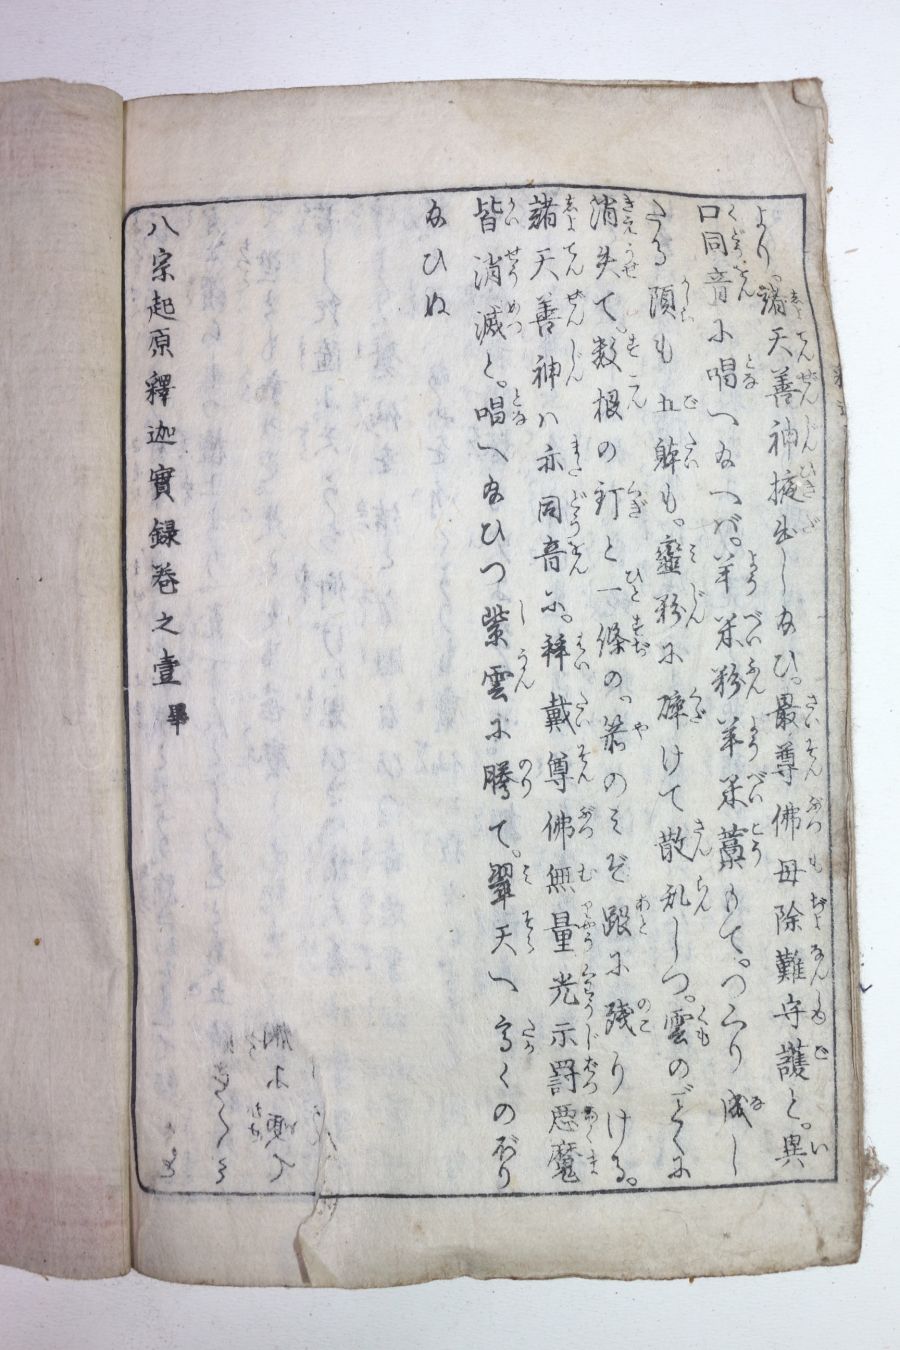 より。諸天善神掖出し給ひ。最尊佛母除難守護と。異
口同音に唱へ給へバ。羊米粉羊米藁もて。つくり成し
たる頭も五躰も。㣲粉に碎けて散乱しつ。雲のごとくに
消失て。数根の釘と一條の。箭のミぞ跟に残りける。
諸天善神ハ亦同音に。拜戴尊佛無量光示罰悪魔
皆消滅と。唱へ給ひつ紫雲に騰て。翠天へ高くのぼり
給ひぬ
八宗起原釋迦實録巻之壹 畢